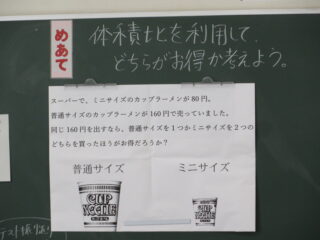 めあて
体積比を利用して、
どちらがお得か考えよう。
スーパーで、ミニサイズのカップラーメンが 80 円。
普通サイズのカップラーメンが 160 円で売っていました。
同じ 160 円を出すなら、普通サイズを 1 つかミニサイズを 2 つの
どちらを買ったほうがお得だろうか？
普通サイズ
ミニサイズ
CUP
NOODLE
CUP
NOODLE